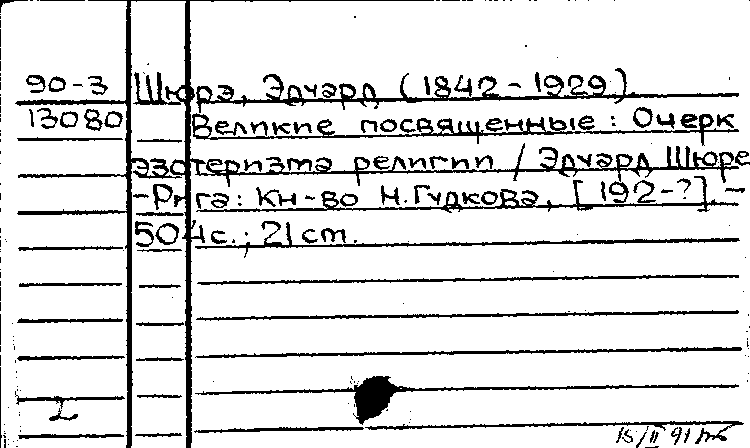 90-3 Шюрэ, Эдуард (1842-1929).
13080 Великие посвященные : Очерк
эзотеризма религии / Эдуард Шюре
-Рига: Кн-во Н.Гудкова, [192-?]. -
504с.; 21ст.
2
15/II 91